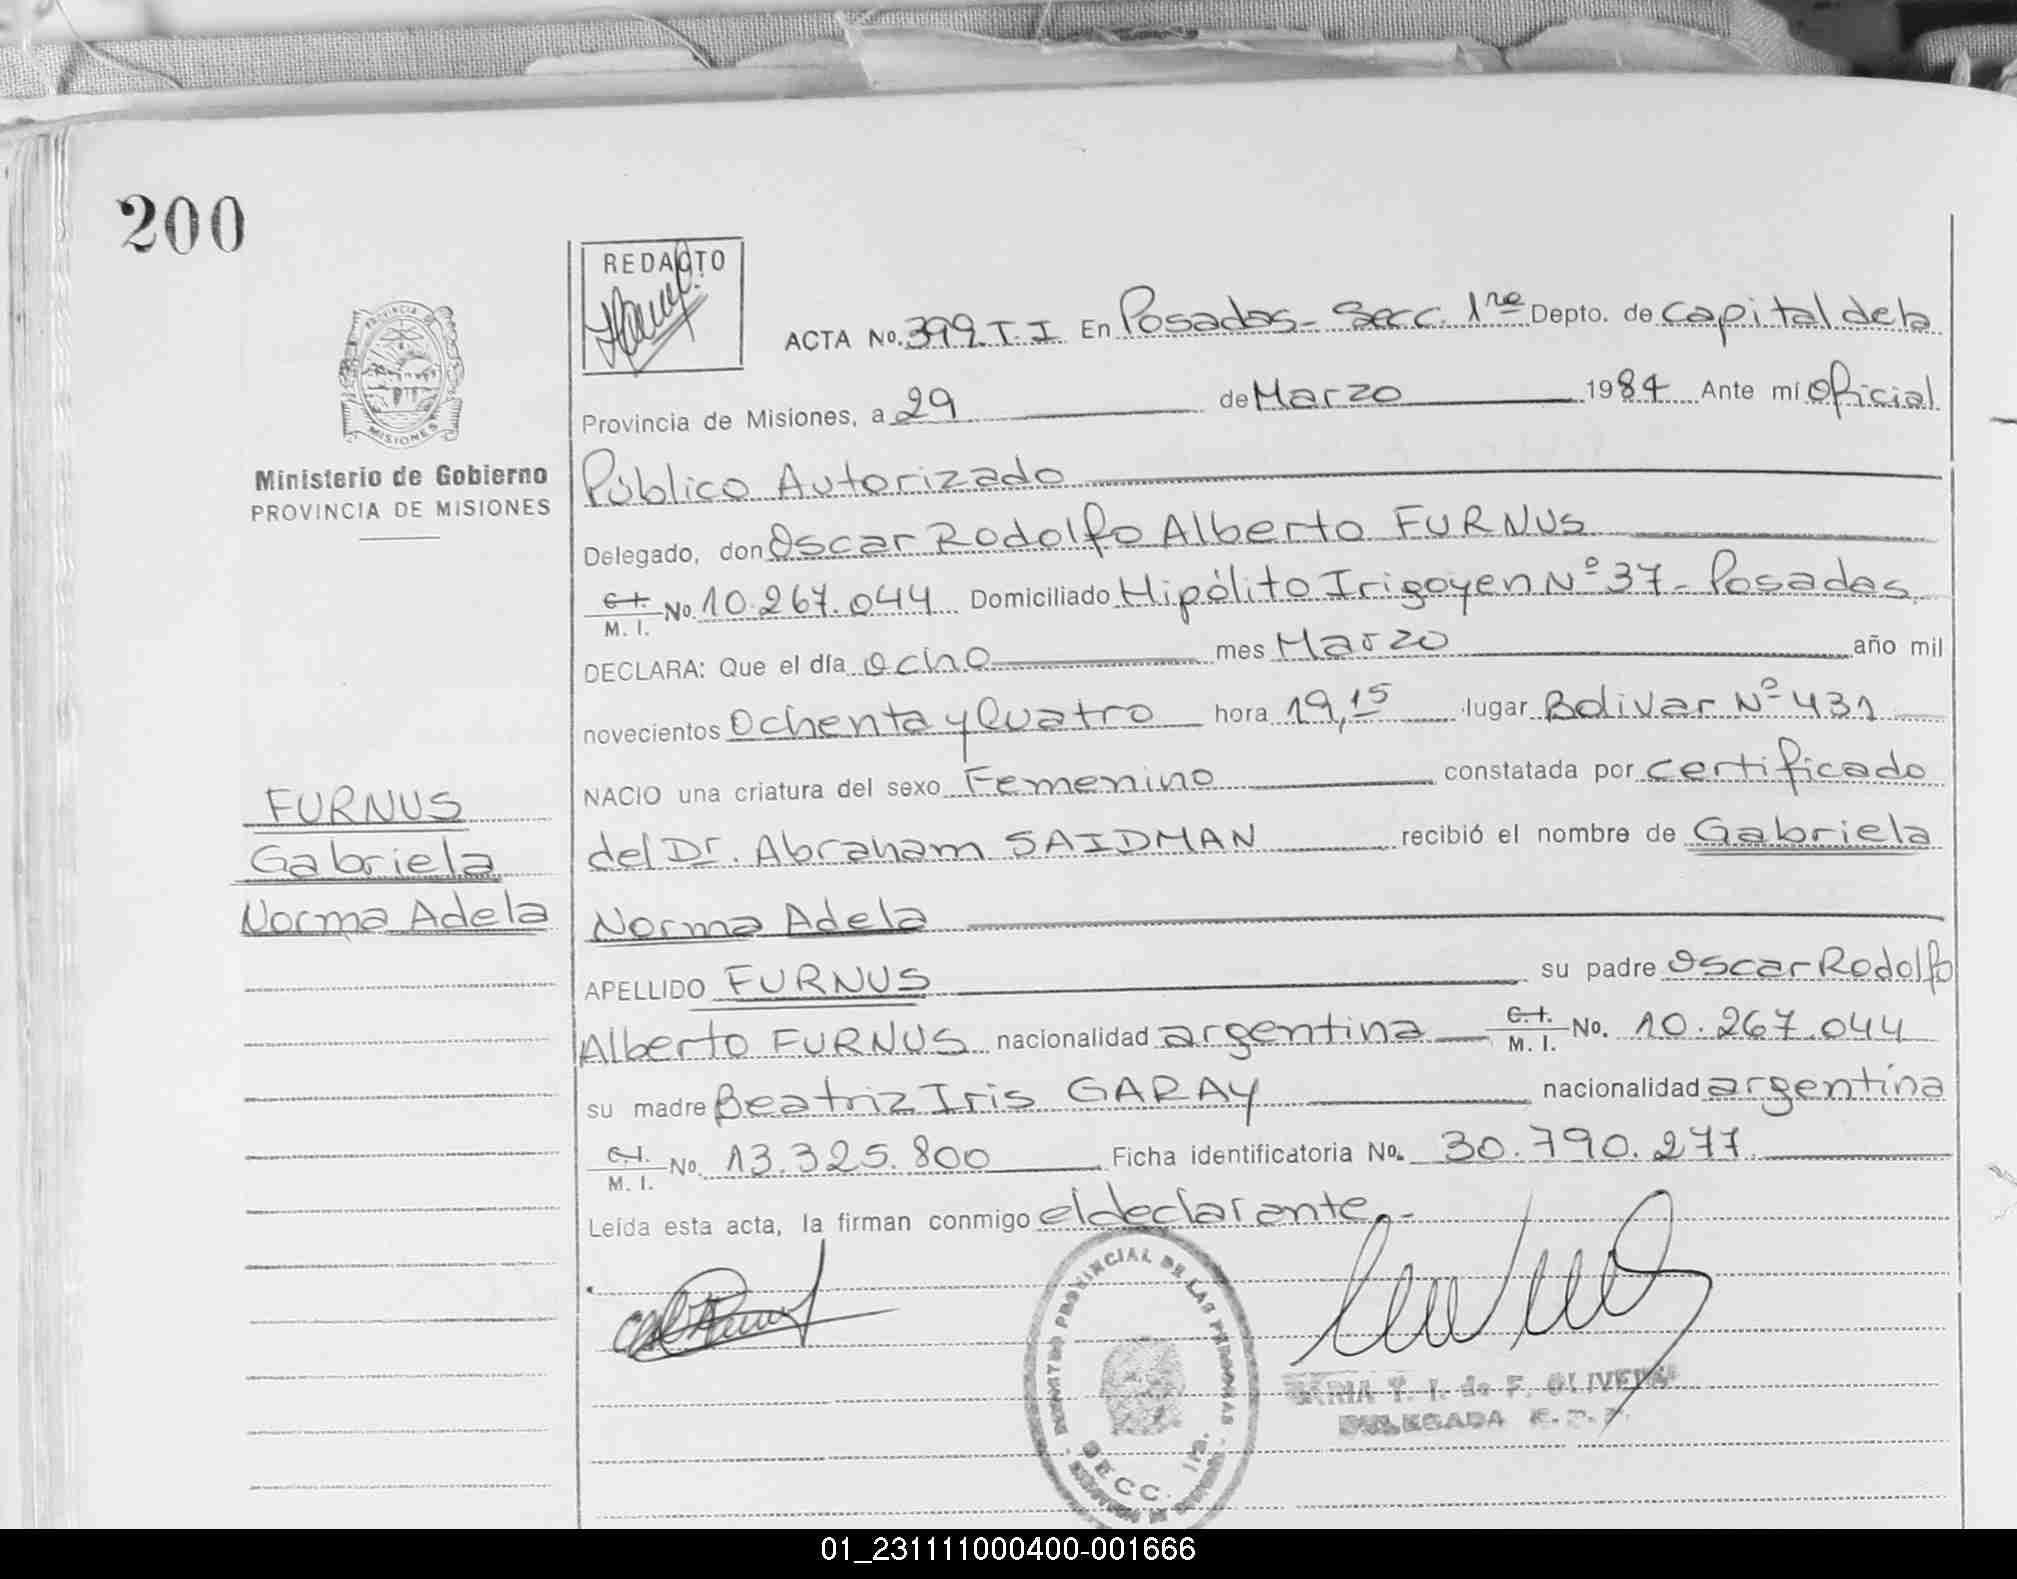 200
REDACTO
ACTA No. 399. T. I En Posadas- Secc. 1ra Depto. de Capital de la
Provincia de Misiones, a 29 de Marzo 1984 Ante mí Oficial
Público Autorizado
Delegado, don Oscar Rodolfo Alberto FURNUS
C.I. M. I. No. 10.267.044 Domiciliado Hipólito Irigoyen Nº 37- Posadas
DECLARA: Que el día ocho mes Marzo año mil
novecientos Ochenta y Cuatro hora 19,15 lugar Bolivar Nº 431
NACIO una criatura del sexo Femenino constatada por certificado
del Dr. Abraham SAIDMAN recibió el nombre de Gabriela
Norma Adela
APELLIDO FURNUS su padre Oscar Rodolfo
Alberto FURNUS nacionalidad argentina C.I. M. I. No. 10.267.044
su madre Beatriz Iris GARAY nacionalidad argentina
C.I. M. I. No. 13.325.800 Ficha identificatoria No. 30.790.277
Leída esta acta, la firman conmigo el declarante.-
PROVINCIA DE
MISIONES
Ministerio de Gobierno
PROVINCIA DE MISIONES
FURNUS
Gabriela
Norma Adela
PROVINCIAL DE LAS PERSONAS
SECC. 1RA.
T. I. de F. OLIVERA
DELEGADA
01_231111000400-001666